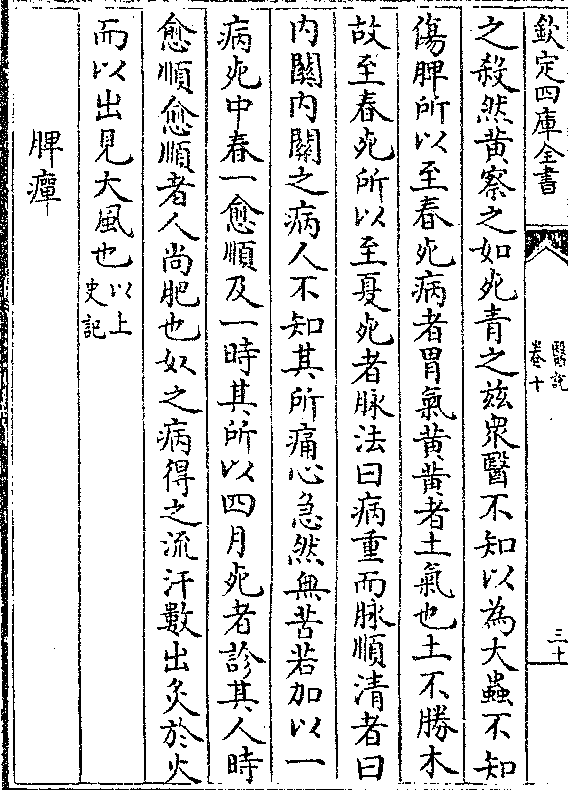 欽定四庫全書
醫説
卷十
三十
之殺然黄察之如死青之兹衆醫不知以為大蟲不知
傷脾所以至春死病者胃氣黄黄者土氣也土不勝木
故至春死所以至夏死者脉法曰病重而脉順清者曰
内關内關之病人不知其所痛心急然無苦若加以一
病死中春一愈順及一時其所以四月死者診其人時
愈順愈順者人尚肥也奴之病得之流汗數出炙於火
而以出見大風也以上史記
脾癉